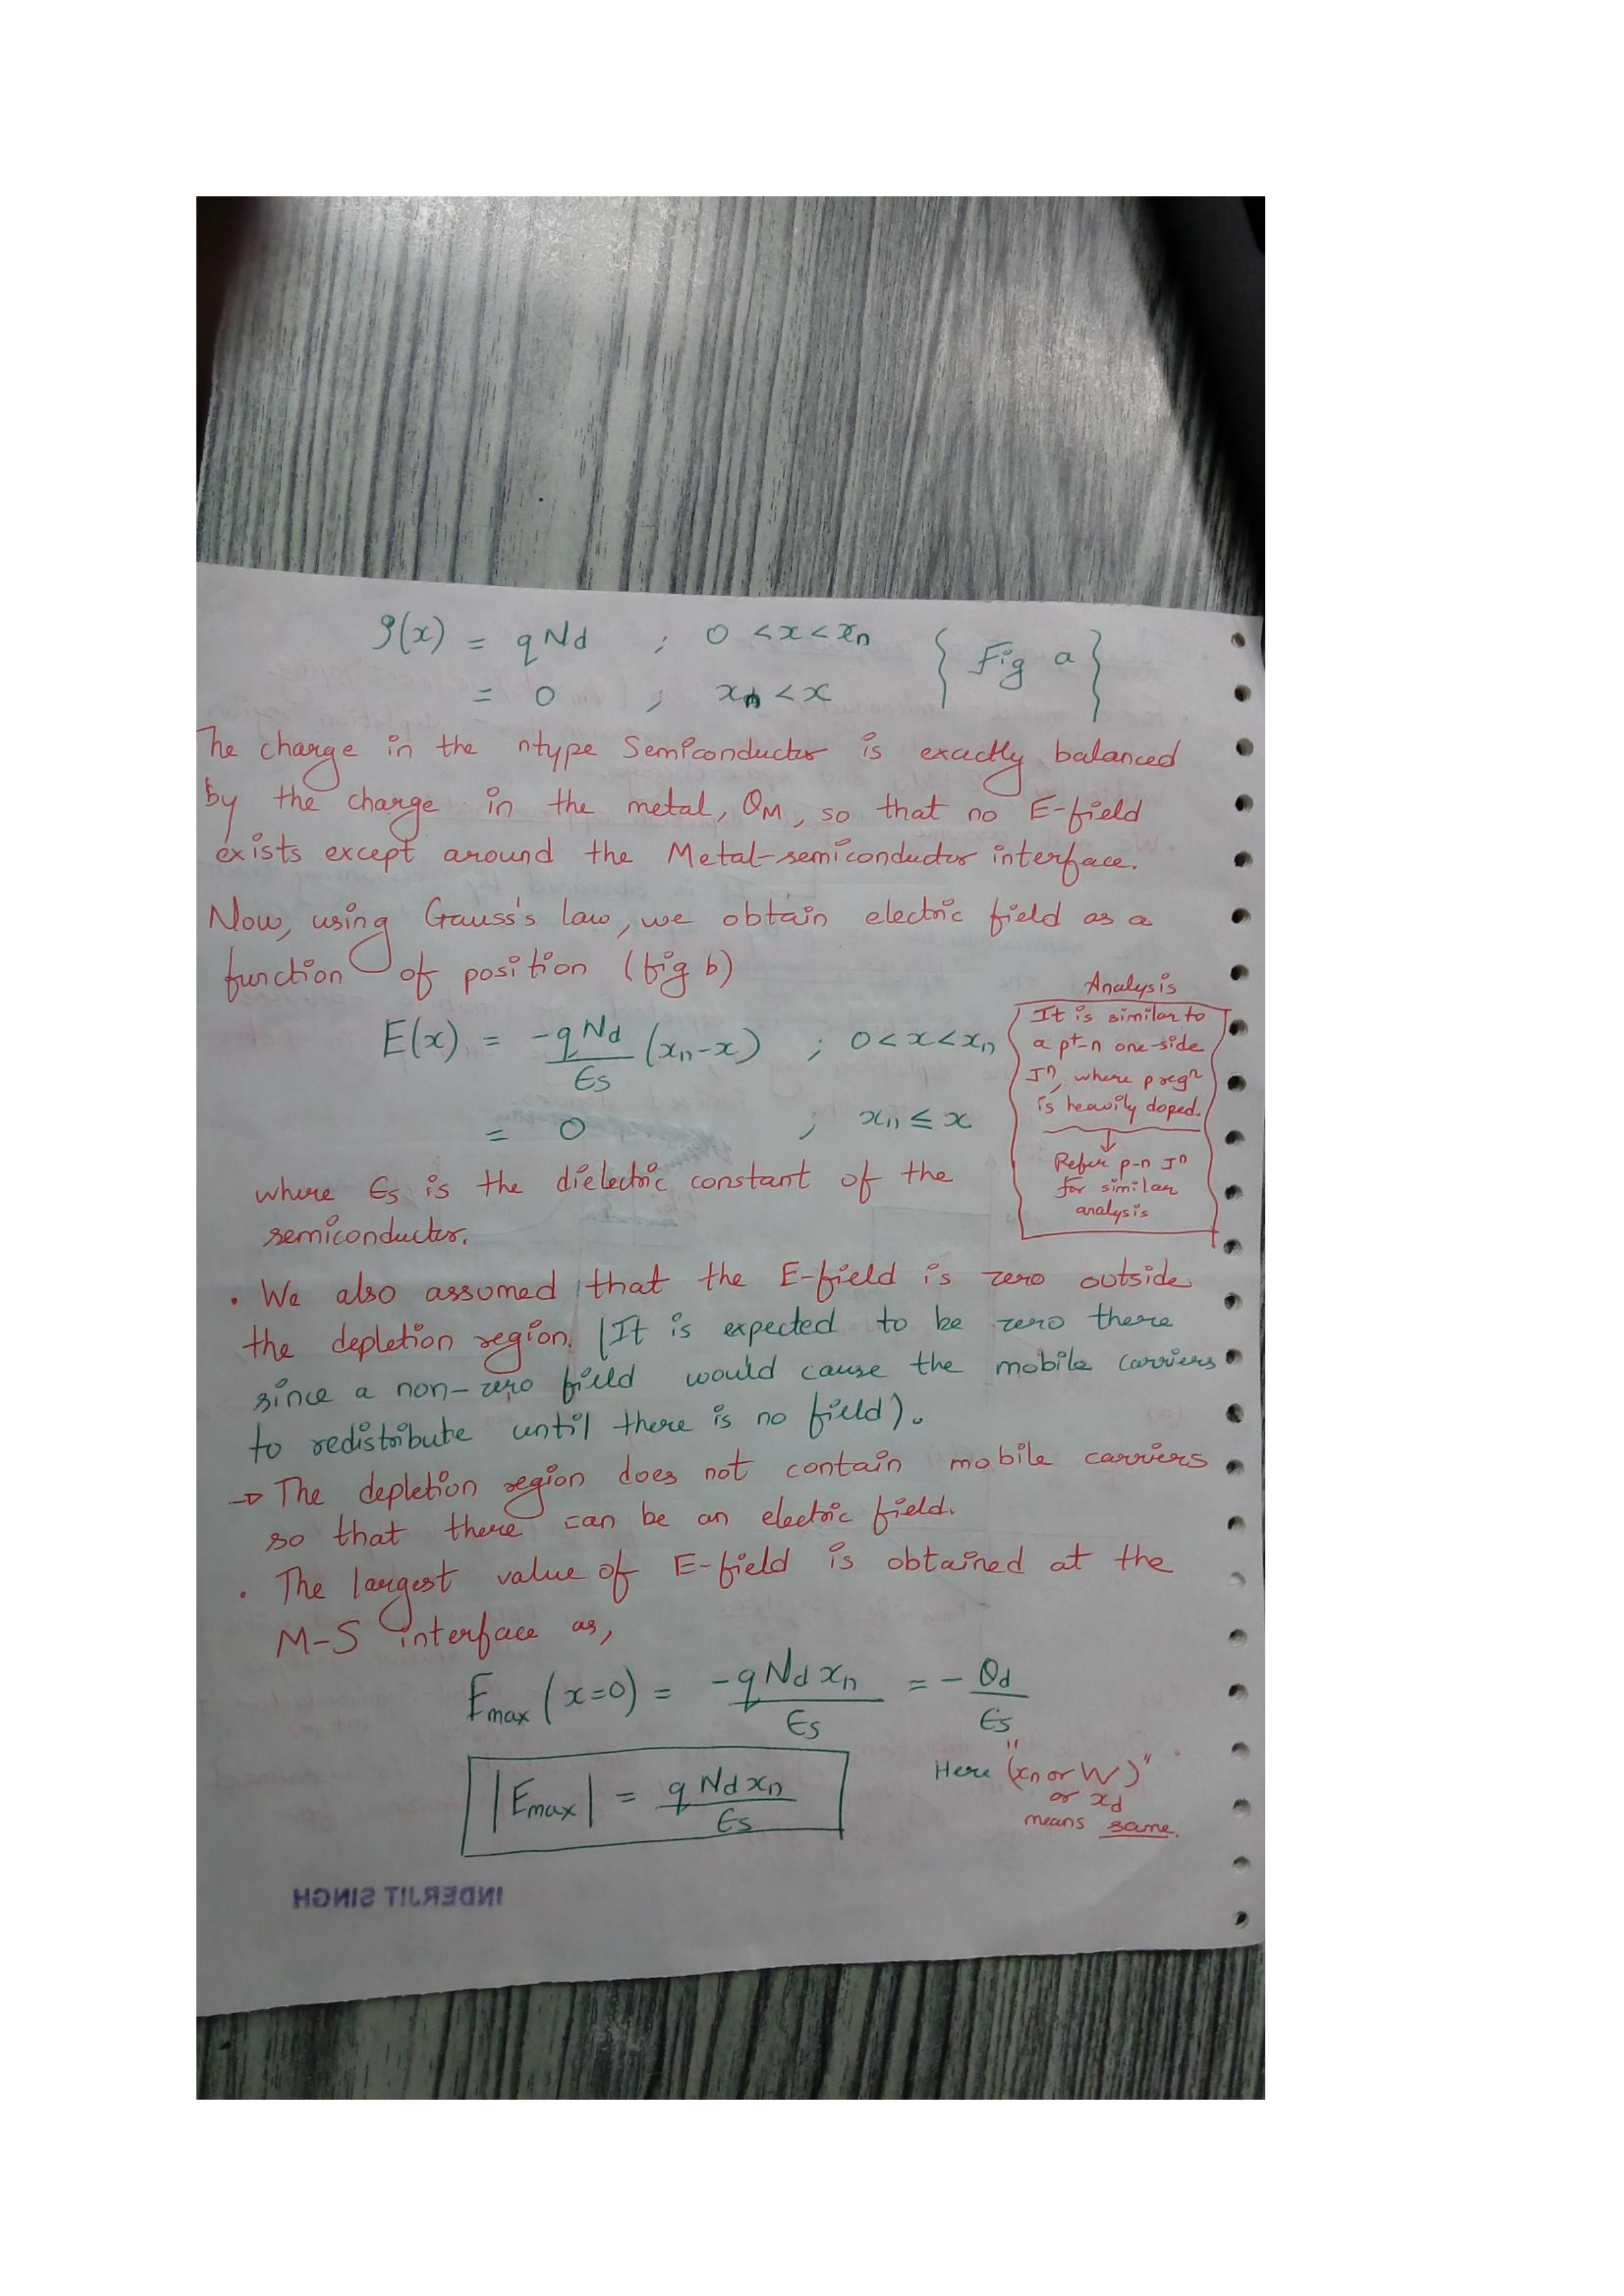 ρ(x) = qNd ; 0 < x < xn { Fig a }
= 0 ; xn < x
The charge in the ntype Semiconductor is exactly balanced
by the charge in the metal, QM, so that no E-field
exists except around the Metal-semiconductor interface.
Now, using Gauss's law, we obtain electric field as a
function of position (fig b)
E(x) = -qNd/Es (xn-x) ; 0 < x < xn
= 0 ; xn ≤ x
Analysis
It is similar to
a p+-n one-side
Jn, where p regn
is heavily doped.
↓
Refer p-n Jn
for similar
analysis
where Es is the dielectric constant of the
semiconductor.
• We also assumed that the E-field is zero outside
the depletion region. (It is expected to be zero there
since a non-zero field would cause the mobile carriers
to redistribute until there is no field).
→ The depletion region does not contain mobile carriers
so that there can be an electric field.
• The largest value of E-field is obtained at the
M-S interface as,
Emax (x=0) = -qNdxn/Es = -Qd/Es
|Emax| = qNdxn/Es
Here "(xn or W)"
or xd
means same.
INDERJIT SINGH